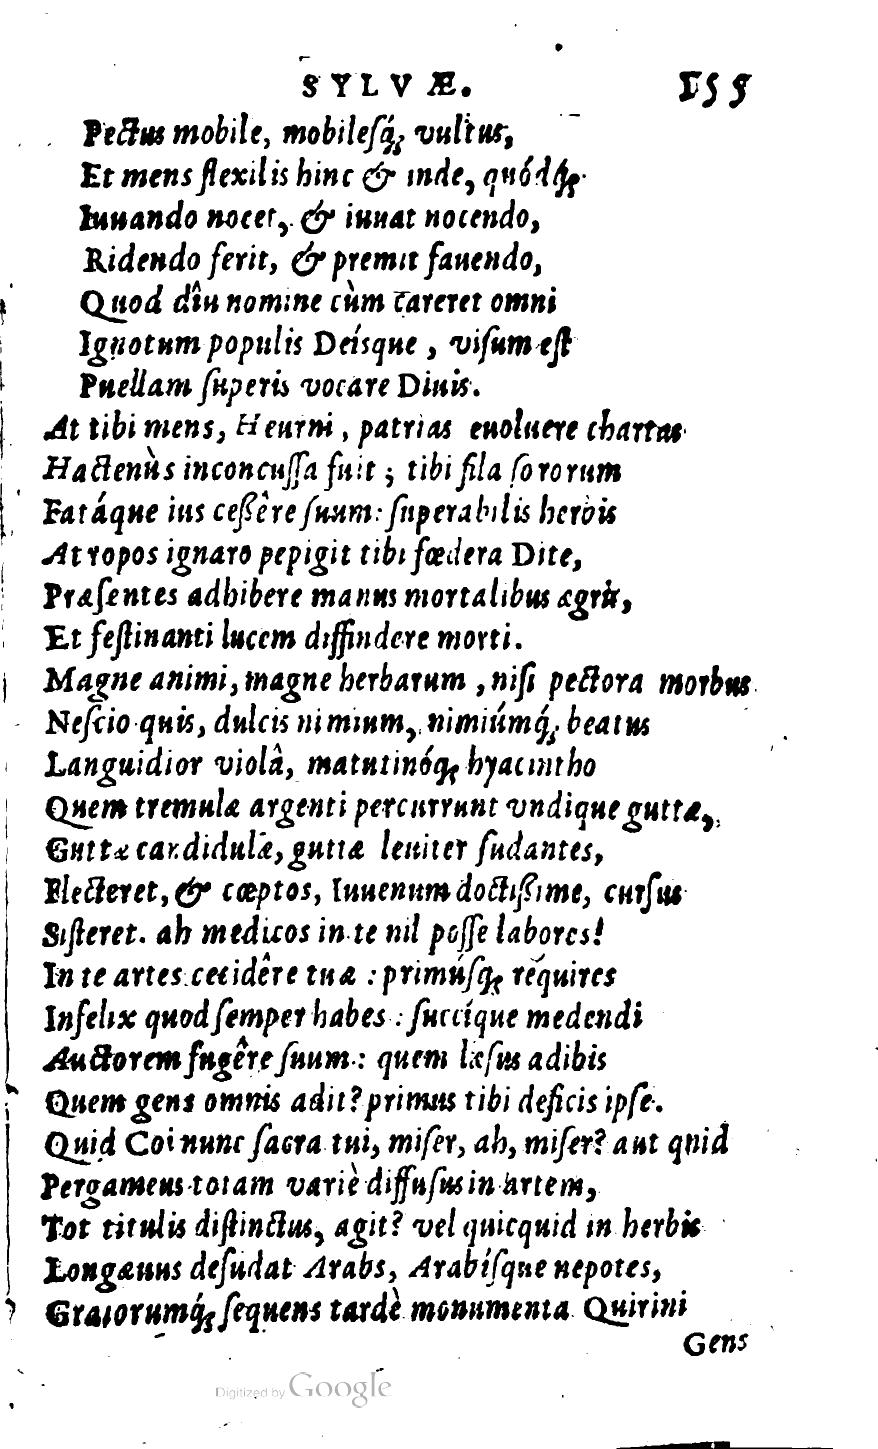 SYLVÆ. 155
Pectus mobile, mobilesq́; vultus,
Et mens flexilis hinc & inde, quódq́;
Iuuando nocet, & iuuat nocendo,
Ridendo ferit, & premit fauendo,
Quod diu nomine cùm careret omni
Ignotum populis Deísque, visum est
Puellam superis vocare Diuis.
At tibi mens, Heurni, patrias euoluere chartas
Hactenùs inconcussa fuit; tibi fila sororum
Fatáque ius cessêre suum: superabilis herbis
Atropos ignaro pepigit tibi fœdera Dite,
Præsentes adhibere manus mortalibus ægris,
Et festinanti lucem diffindere morti.
Magne animi, magne herbarum, nisi pectora morbus
Nescio quis, dulcis nimium, nimiúmq́; beatus
Languidior violâ, matutinóq; hyacintho
Quem tremulæ argenti percurrunt vndique guttæ,
Guttæ candidulæ, guttæ leuiter sudantes,
Flecteret, & cœptos, Iuuenum doctissime, cursus
Sisteret. ah medicos in te nil posse labores!
In te artes cecidêre tuæ: primúsq; requires
Infelix quod semper habes: succíque medendi
Auctorem fugêre suum: quem læsus adibis
Quem gens omnis adit? primus tibi deficis ipse.
Quid Coi nunc sacra tui, miser, ah, miser? aut quid
Pergameus totam variè diffusus in artem,
Tot titulis distinctus, agit? vel quicquid in herbis
Longæuus desudat Arabs, Arabísque nepotes,
Graiorumq́; sequens tardè monumenta Quirini
Gens
Digitized by Google